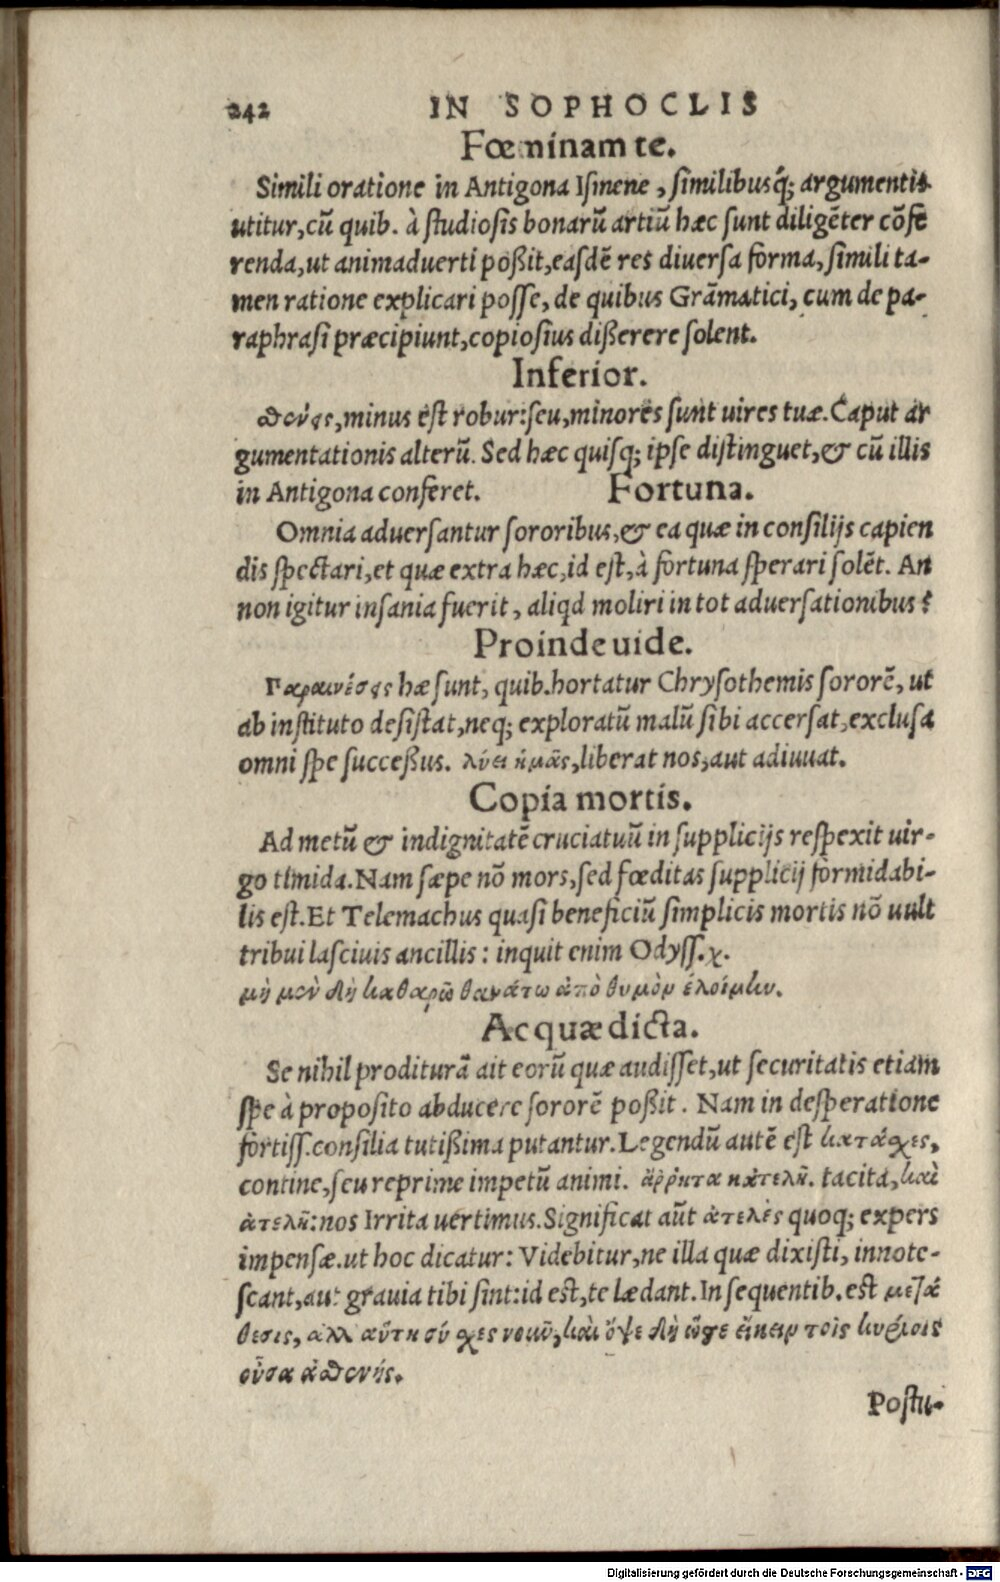 242 IN SOPHOCLIS
Fœminam te.
Simili oratione in Antigona Ismene, similibusq́; argumentis
utitur, cū quib. à studiosis bonarū artiū hæc sunt diligēter cōfe
renda, ut animaduerti poßit, easdē res diuersa forma, simili ta-
men ratione explicari posse, de quibus Grāmatici, cum de pa-
raphrasi præcipiunt, copiosius dißerere solent.
Inferior.
σθένεις, minus est robur: seu, minores sunt uires tuæ. Caput ar
gumentationis alterū. Sed hæc quisq; ipse distinguet, & cū illis
in Antigona conferet. Fortuna.
Omnia aduersantur sororibus, & ea quæ in consilijs capien
dis spectari, et quæ extra hæc, id est, à fortuna sperari solēt. An
non igitur insania fuerit, aliqd moliri in tot aduersationibus?
Proinde uide.
Παραινέσεις hæ sunt, quib. hortatur Chrysothemis sororē, ut
ab instituto desistat, neq; exploratū malū sibi accersat, exclusa
omni spe succeßus. λύει ἡμᾶς, liberat nos, aut adiuuat.
Copia mortis.
Ad metū & indignitatē cruciatuū in supplicijs respexit uir-
go timida. Nam sæpe nō mors, sed fœditas supplicij formidabi-
lis est. Et Telemachus quasi beneficiū simplicis mortis nō uult
tribui lasciuis ancillis: inquit enim Odyss. χ.
μὴ μὲν δὴ καθαρῷ θανάτω ἀπὸ θυμὸν ἑλοίμην.
Ac quæ dicta.
Se nihil proditurā ait eorū quæ audisset, ut securitatis etiam
spe à proposito abducere sororē poßit. Nam in desperatione
fortiss. consilia tutißima putantur. Legendū autē est κατάχες,
contine, seu reprime impetū animi. ἄῤῥητα κἀτελῆ. tacita, καὶ
ἀτελῆ: nos Irrita uertimus. Significat aūt ἀτελὲς quoq; expers
impensæ. ut hoc dicatur: Videbitur, ne illa quæ dixisti, innote-
scant, aut grauia tibi sint: id est, te lædant. In sequentib. est μετά
θεσις, ἀλλ αὕτη σύ χες νοιῦ, καὶ ὄψε δὴ ὥστε εἴκειν τοῖς κυρίοις
οὖσα ἀσθενής.
Postu-
Digitalisierung gefördert durch die Deutsche Forschungsgemeinschaft - DFG